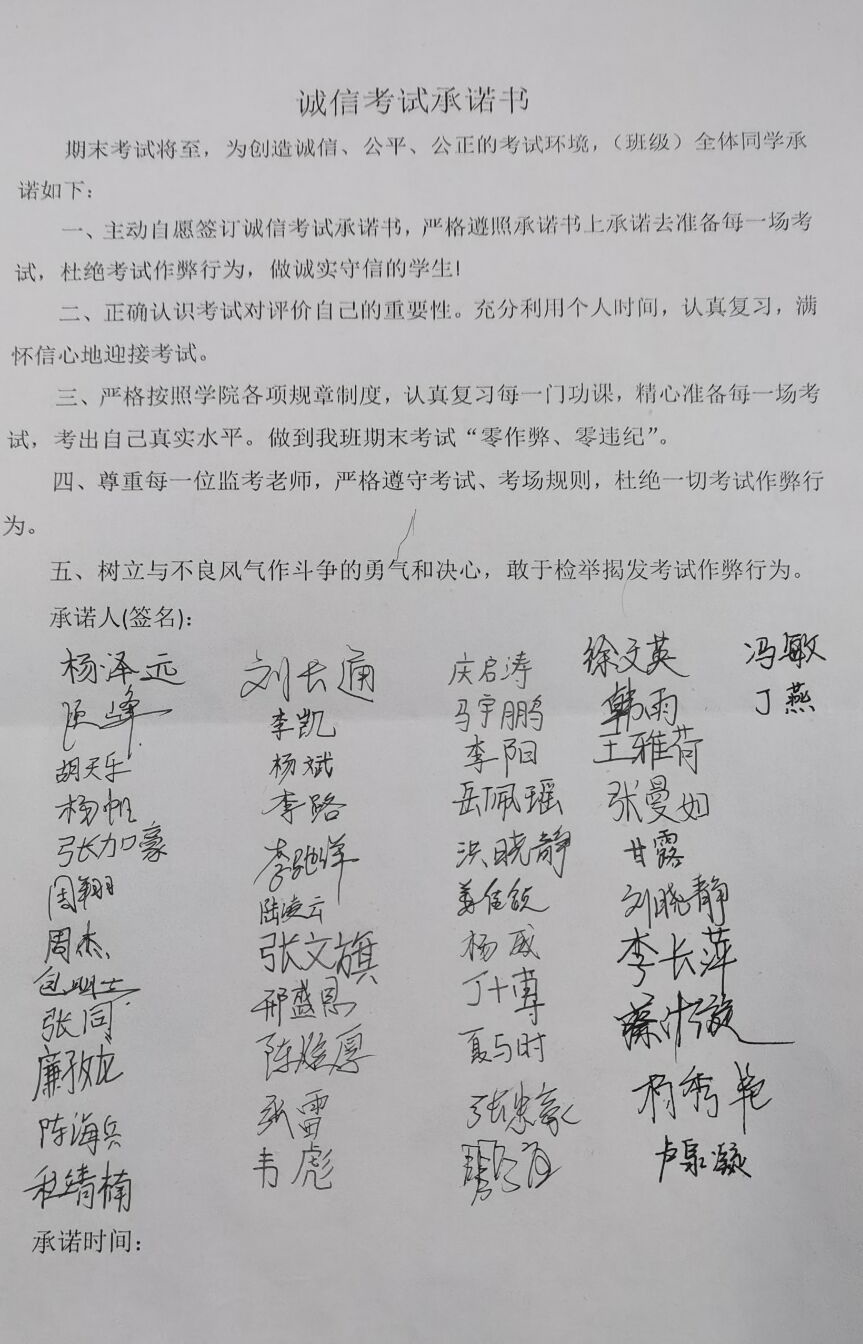 诚信考试承诺书
期末考试将至，为创造诚信、公平、公正的考试环境，（班级）全体同学承
诺如下：
一、主动自愿签订诚信考试承诺书，严格遵照承诺书上承诺去准备每一场考
试，杜绝考试作弊行为，做诚实守信的学生!
二、正确认识考试对评价自己的重要性。充分利用个人时间，认真复习，满
怀信心地迎接考试。
三、严格按照学院各项规章制度，认真复习每一门功课，精心准备每一场考
试，考出自己真实水平。做到我班期末考试“零作弊、零违纪”。
四、尊重每一位监考老师，严格遵守考试、考场规则，杜绝一切考试作弊行
为。
五、树立与不良风气作斗争的勇气和决心，敢于检举揭发考试作弊行为。
承诺人(签名)：
杨泽远 刘长通 庆启涛 徐文英 冯敏
李凯 马宇鹏 韩雨 丁燕
胡天乐 杨斌 李阳 王雅荷
杨帆 李路 岳佩瑶 张曼如
张加豪 洪晓静 甘露
周翔 陆凌云 刘晓静
周杰 张文旗 杨威 李长萍
张同 邢盛恩 丁十博
夏与时
陈海兵 张雷 张忠豪 杨秀艳
程靖楠 韦彪
承诺时间：